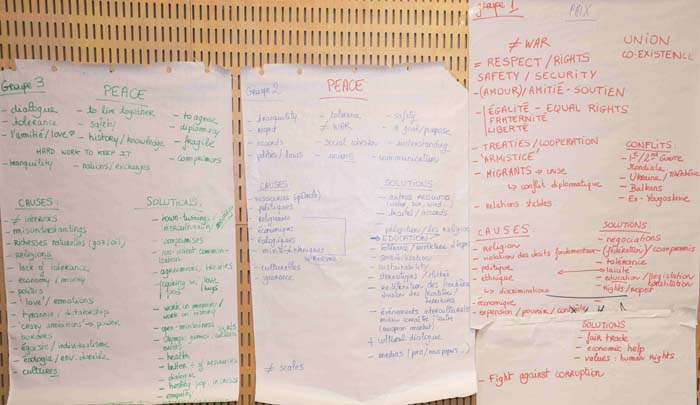 Groupe 3
PEACE
- dialogue
- tolerance
- l'amitié / love?
- to live together
- safety
- history / knowledge
- to agree
- diplomacy
- fragile
- compromises
HARD WORK TO KEEP IT
- tranquility
- nations / exchanges
CAUSES:
- ≠ interests
- misunderstandings
- richesses naturelles (gaz / oil)
- Religions
- lack of tolerance
- economy / money
- politics
- 'love' / emotions
- tyrannie / dictatorship
- crazy ambitions → power
- borders
- egoism / individualisme
- écologie / env.
- cultures
SOLUTIONS:
- town-twinings /
- compromises
- non-violent communication
- agreements, treaties
- cooking w/ love
- work on memory /
work on history
- open-mindedness
- Olympic games / cultural
- health
- better ≠ of resources
- dialogue
- empathy
Groupe 2
PEACE
- tranquility
- respect
- accords
- politics / laws
- tolerance
- ≠ WAR
- social cohesion
- unions
- safety
- a goal / purpose
- understanding
- communication
CAUSES
- ressources
- politiques
- religieuses
- économique
- écologiques
- culturelles
- ignorance
SOLUTIONS
- autres ressources
- traités / accords
- EDUCATION
- sensibilisation
- sustainability
- stereotypes
- évènements interculturels
(european market)
+ cultural dialogue
- medias
≠ scales
groupe 1
PAIX
≠ WAR
UNION
CO-EXISTENCE
= RESPECT / RIGHTS
SAFETY / SECURITY
- (AMOUR) / AMITIÉ - SOUTIEN
- ÉGALITÉ - EQUAL RIGHTS
FRATERNITÉ
LIBERTÉ
- TREATIES / COOPERATION
- 'ARMISTICE'
- MIGRANTS → crise
↳ conflit diplomatique
- relations stables
CONFLITS:
- 1e / 2e Guerre
Mondiale
- Ukraine
- Balkans
- Ex-Yougoslavie
CAUSES
- Religion
- violation des droits fondamentaux
- politique
- ethnique
↳ discriminations
- économique
- expansion / pouvoir / contrôle
SOLUTIONS
- negociations
- (fédération) / compromis
- tolérance
- laïcité
- éducation / législation
- rights / respect
SOLUTIONS
- fair trade
- economic help
- values : human rights
- Fight against corruption